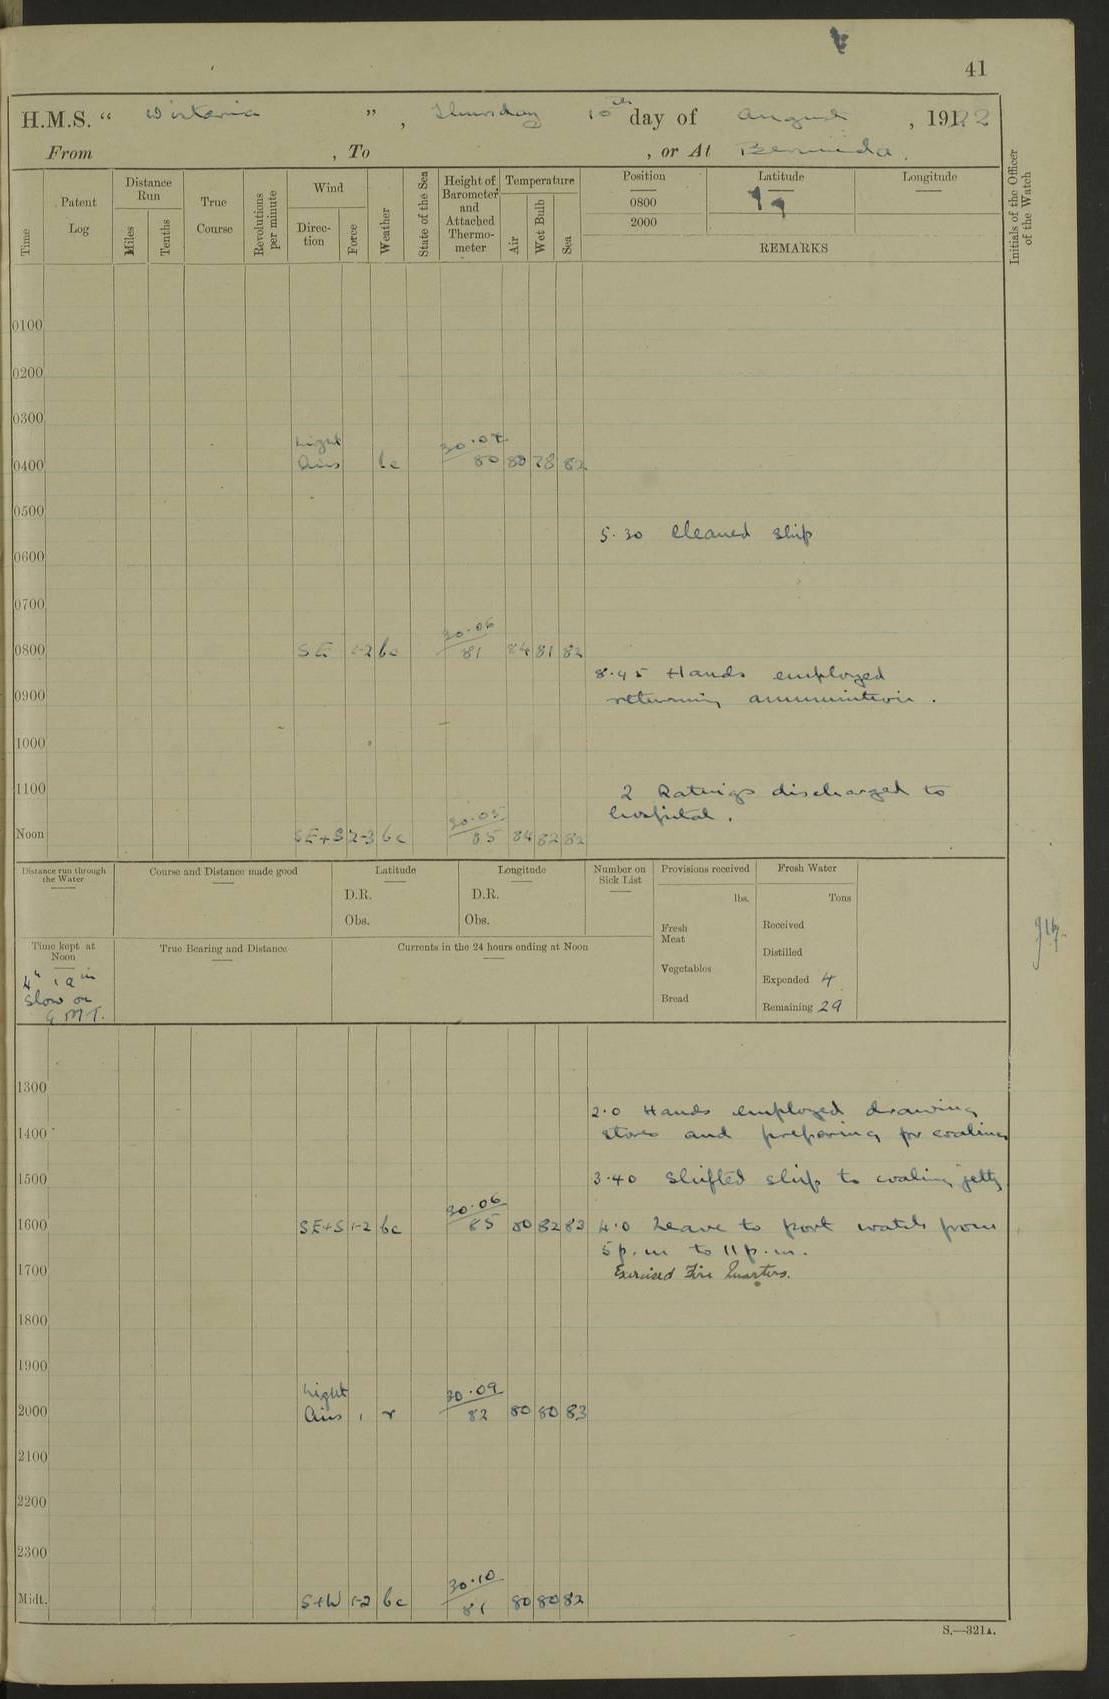 41
H.M.S. “ Wistaria ” , Thursday 10th day of August , 1922
From , To , or At Bermuda.
Time
Patent Log
Distance Run
Miles
Tenths
True Course
Revolutions per minute
Wind
Direc-tion
Force
Weather
State of the Sea
Height of Barometer and Attached Thermo-meter
Temperature
Air
Wet Bulb
Sea
Position
0800
2000
Latitude
Longitude
REMARKS
Initials of the Officer of the Watch
0100
0200
0300
Light 30.07
0400 Airs bc 80 80 78 82
0500
5.30 Cleaned ship
0600
0700
30.06
0800 SE 1-2 bc 81 84 81 82
8.45 Hands employed
0900 returning ammunition.
1000
1100 2 Ratings discharged to
hospital.
30.05
Noon SE+S 2-3 bc 85 84 82 82
Distance run through the Water
Course and Distance made good
Latitude
D.R.
Obs.
Longitude
D.R.
Obs.
Number on Sick List
Provisions received
lbs.
Fresh Meat
Vegetables
Bread
Fresh Water
Tons
Received
Distilled
Expended 4
Remaining 29
Time kept at Noon
slow on
G.M.T.
True Bearing and Distance
Currents in the 24 hours ending at Noon
1300
2.0 Hands employed drawing
1400 stores and preparing for coaling
1500 3.40 Shifted ship to coaling jetty
30.06
1600 SE+S 1-2 bc 85 80 82 83 4.0 Leave to port watch from
5 p.m to 11 p.m.
1700 Exercised Fire Quarters.
1800
1900
Light 30.09
2000 Airs 1 r 82 80 80 83
2100
2200
2300
30.10
Midt. S+W 1-2 bc 81 80 80 82
S.—321A.